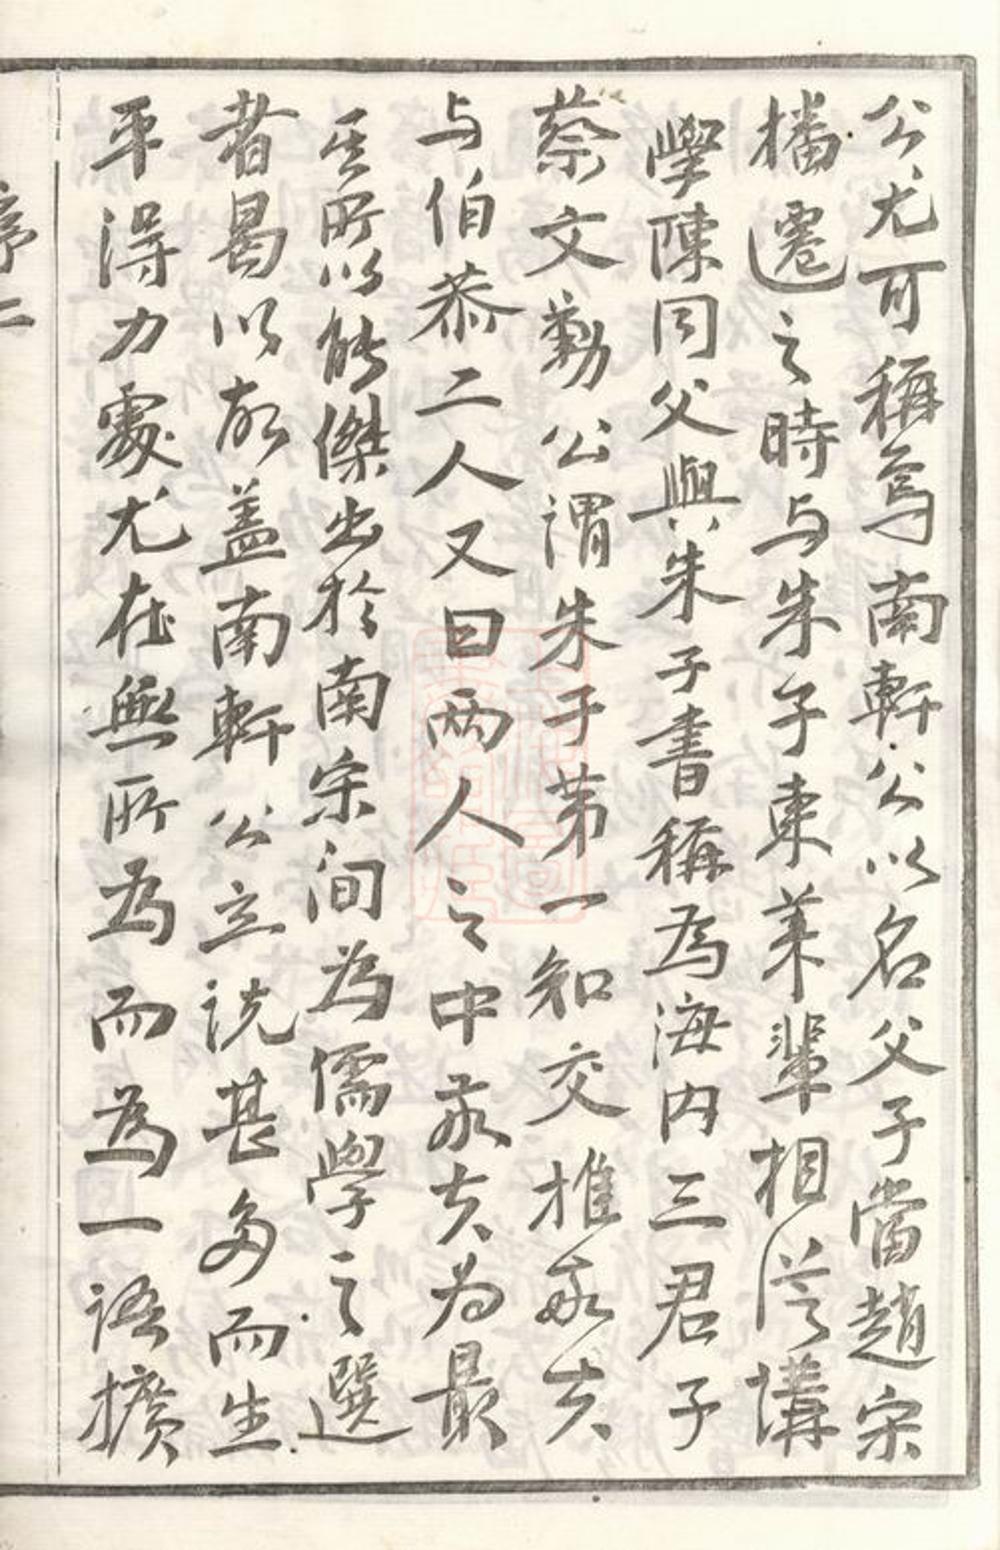 公尤可稱焉南軒公以名父子當趙宋
播遷之時与朱子東莱輩相從講
學陳同父與朱子書稱為海内三君子
蔡文勤公謂朱子第一知交推敬夫
与伯恭二人又曰兩人之中敬夫為最
其所以能傑出於南宋间為儒學之選
者曷以故盖南軒公立说甚多而生
平淂力處尤在無所為而為一語擴
序二